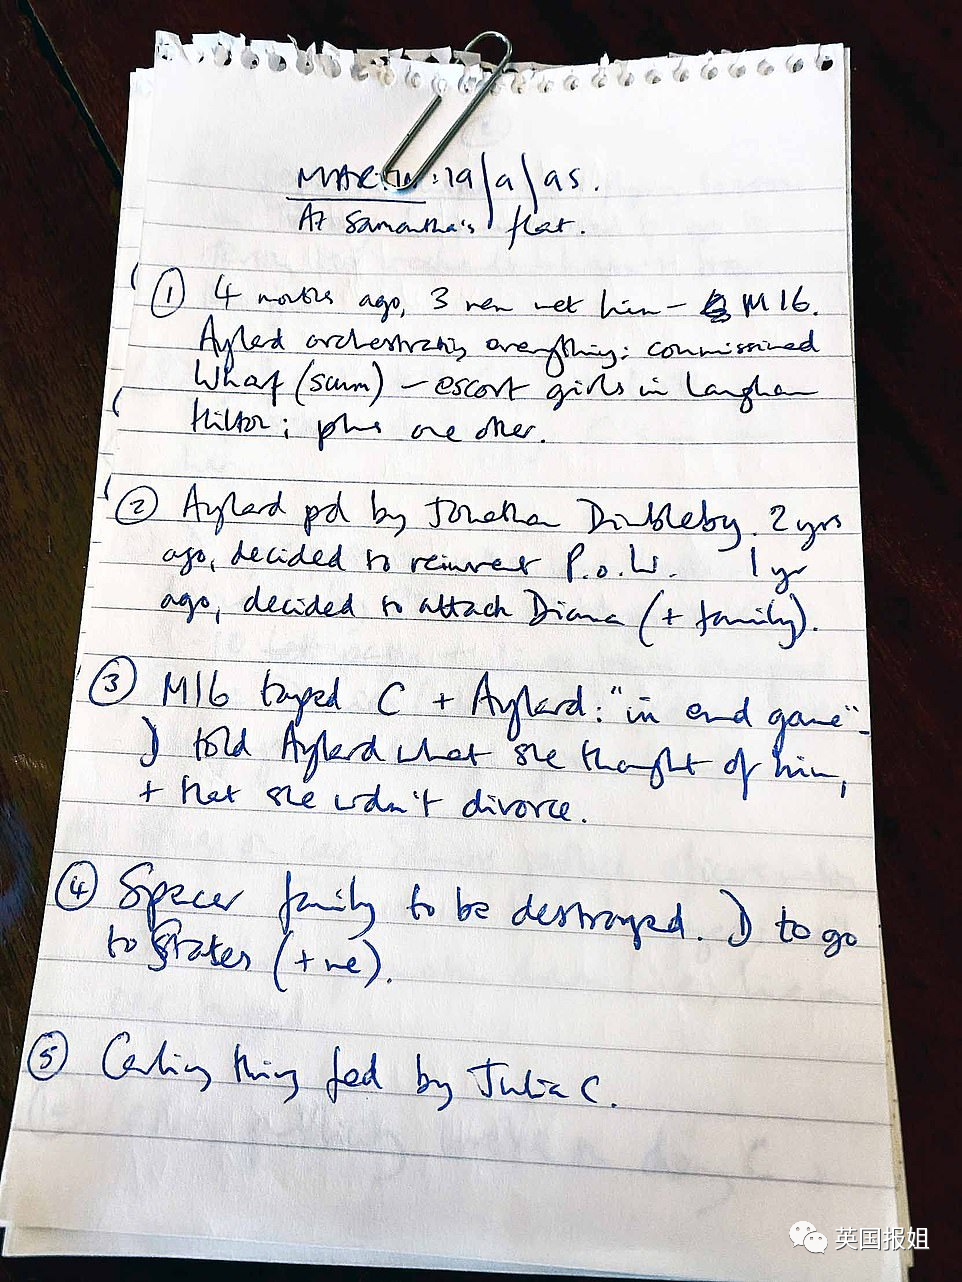 MARTIN: 19/9/95.
At Samantha's flat.
① 4 months ago, 3 men met him — MI6.
Aylard orchestrating everything: commissioned
Wharf (scum) — escort girls in Langham
Hilton; plus one other.
② Aylard pd by Jonathan Dimbleby. 2 yrs
ago, decided to reinvent P.o.W. 1 yr
ago, decided to attack Diana (+ family).
③ MI6 taped C + Aylard: "in end game".
D told Aylard what she thought of him,
+ that she wdn't divorce.
④ Spencer family to be destroyed. D to go
to States (+ me).
⑤ Carling thing fed by Julia C.
英国报姐